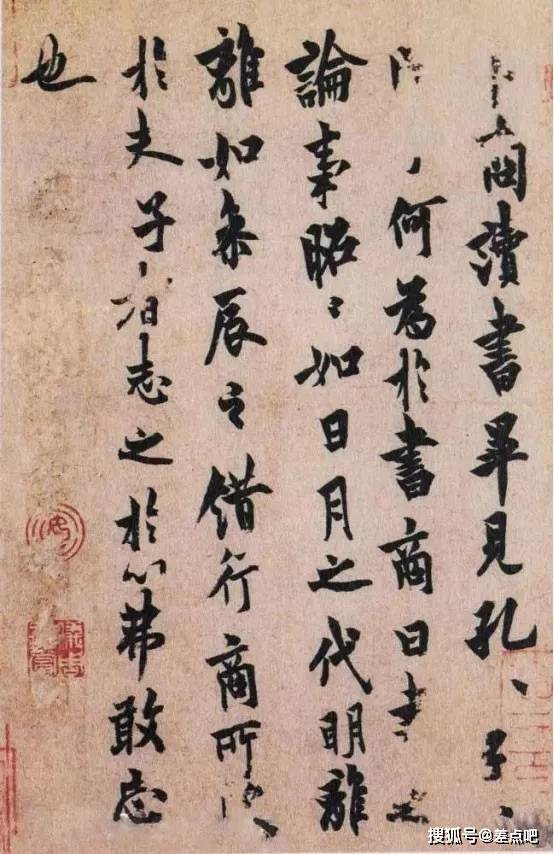 商讀書畢見孔〻子〻
何為於書商曰書
論事昭〻如日月之代明離
離如參辰之錯行商所
於夫子者志之於心弗敢忘
也
搜狐号@差点吧